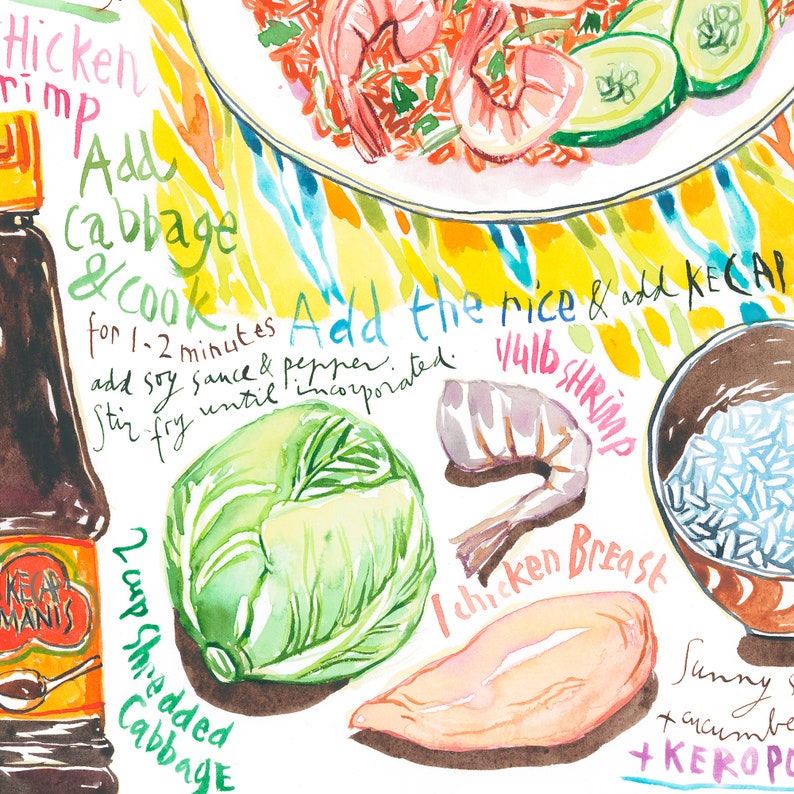 CHicken
rimp
Add
cabbage
& cook
for 1-2 minutes
add soy sauce & pepper.
Stir-fry until incorporated.
Add the rice & add KECAP
1/4lb SHRIMP
KECAP
MANIS
2 cup Shredded
Cabbage
1 chicken Breast
Sunny s
+ cucumbe
+ KEROPO